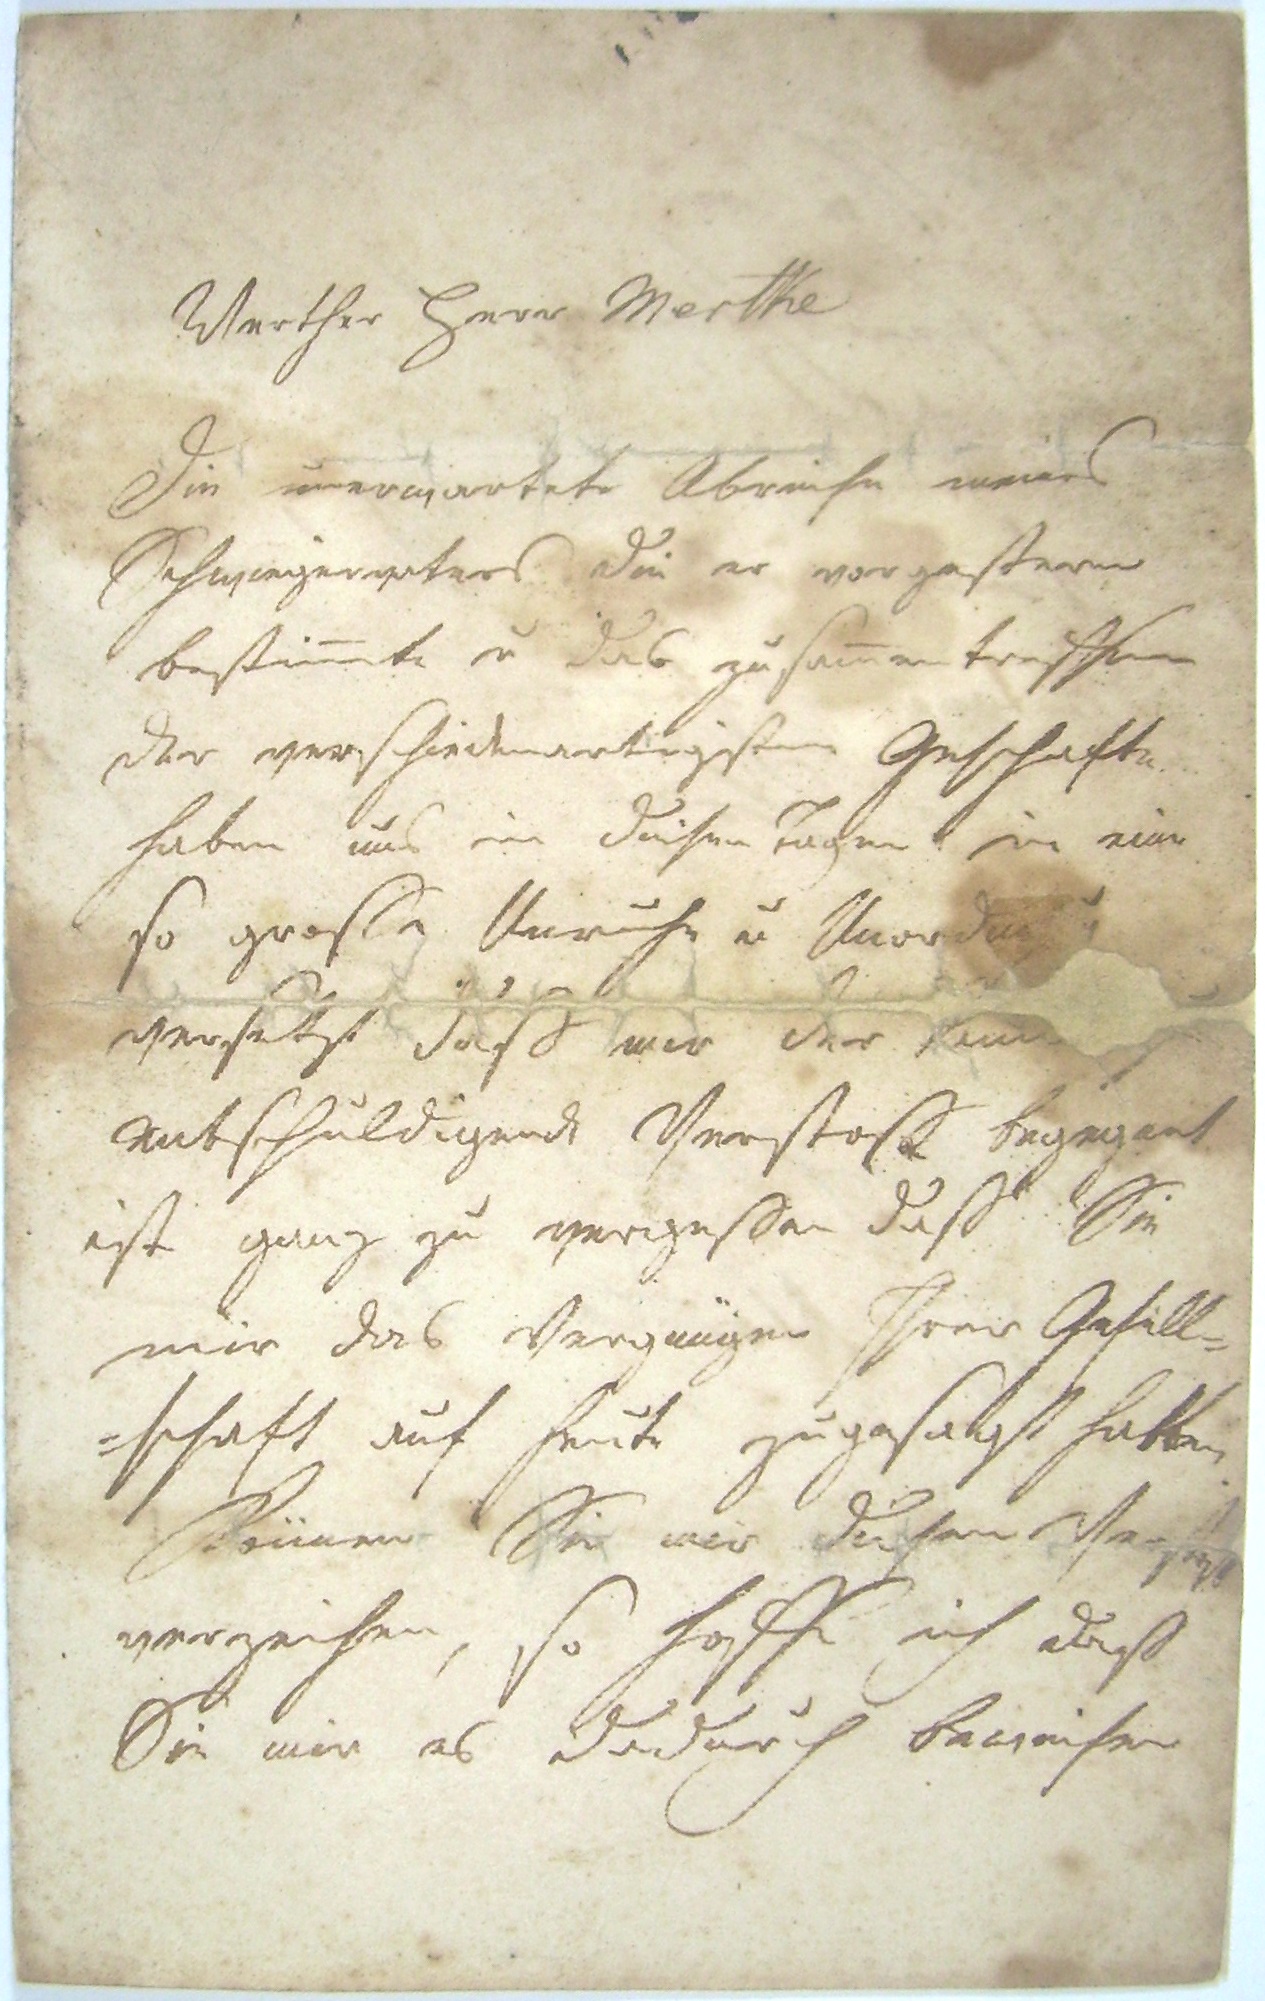 Werther Herr Merthe
Die unerwartete Abreise meines
Schwiegervaters die er vorgestern
bestimmte u das zusammentreffen
der verschiedenartigsten Geschäfte
haben uns in diesen Tagen in eine
so grosse Unruhe u
versetzt daß mir der
entschuldigende Verstoß begegnet
ist ganz zu vergessen daß Sie
mir das Vergnügen Ihrer Gesell=
=schaft auf heute zugesagt hatten
Können Sie mir diesen
verzeihen, so hoffe ich daß
Sie mir es dadurch beweisen